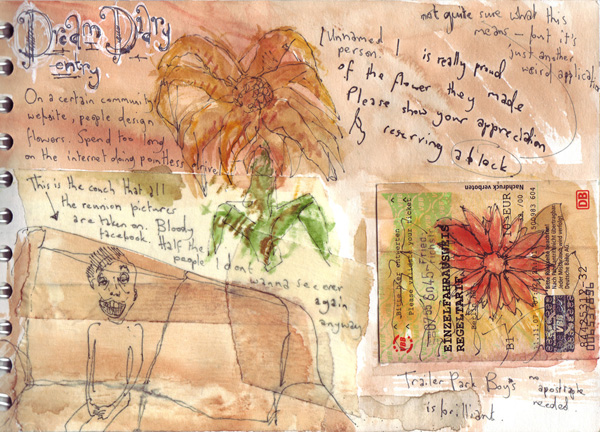 Dream Diary
entry
On a certain community
website, people design
flowers. Spend too long
on the internet doing pointless drivel
[Unnamed
person] is really proud
of the flower they made
Please show your appreciation
by reserving a block
not quite sure what this
means – but it's
just another
weird application
This is the couch that all
the reunion pictures
are taken on. Bloody
facebook. Half the
people I don't
wanna see ever
again
anyway
Nachdruck verboten
DB
< Bitte hier entwerten <
< Please validate your ticket <
EINZELFAHRAUSWEIS
REGELTARIF
B1
EUR
VBB
Trailer Park Boys
no
apostrophe
needed.
is brilliant.